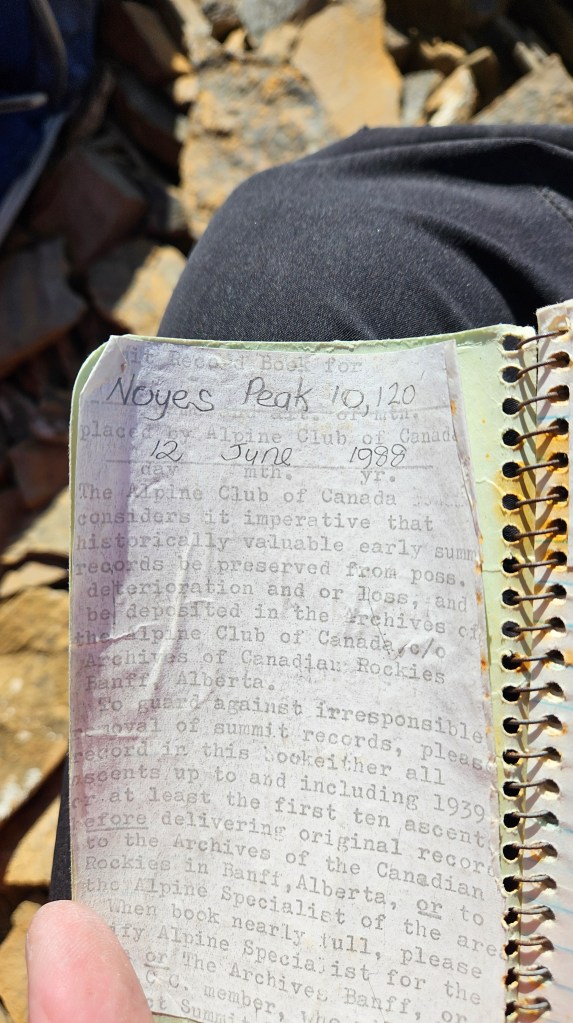 it Record Book for
Noyes Peak 10,120
nd alt. of mtn.
placed by Alpine Club of Canada
12 June 1988
day mth. yr.
The Alpine Club of Canada
considers it imperative that
historically valuable early summ
records be preserved from poss.
deterioration and or loss, and
be deposited in the Archives of
the Alpine Club of Canada, c/o
Archives of Canadian Rockies
Banff, Alberta.
To guard against irresponsible
moval of summit records, pleas
record in this bookeither all
ascents up to and including 1939
or at least the first ten ascents
efore delivering original record
to the Archives of the Canadian
Rockies in Banff, Alberta, or to
the Alpine Specialist of the area
When book nearly full, please
ify Alpine Specialist for the
or The Archives Banff, or
C.C. member, who
ct Summit